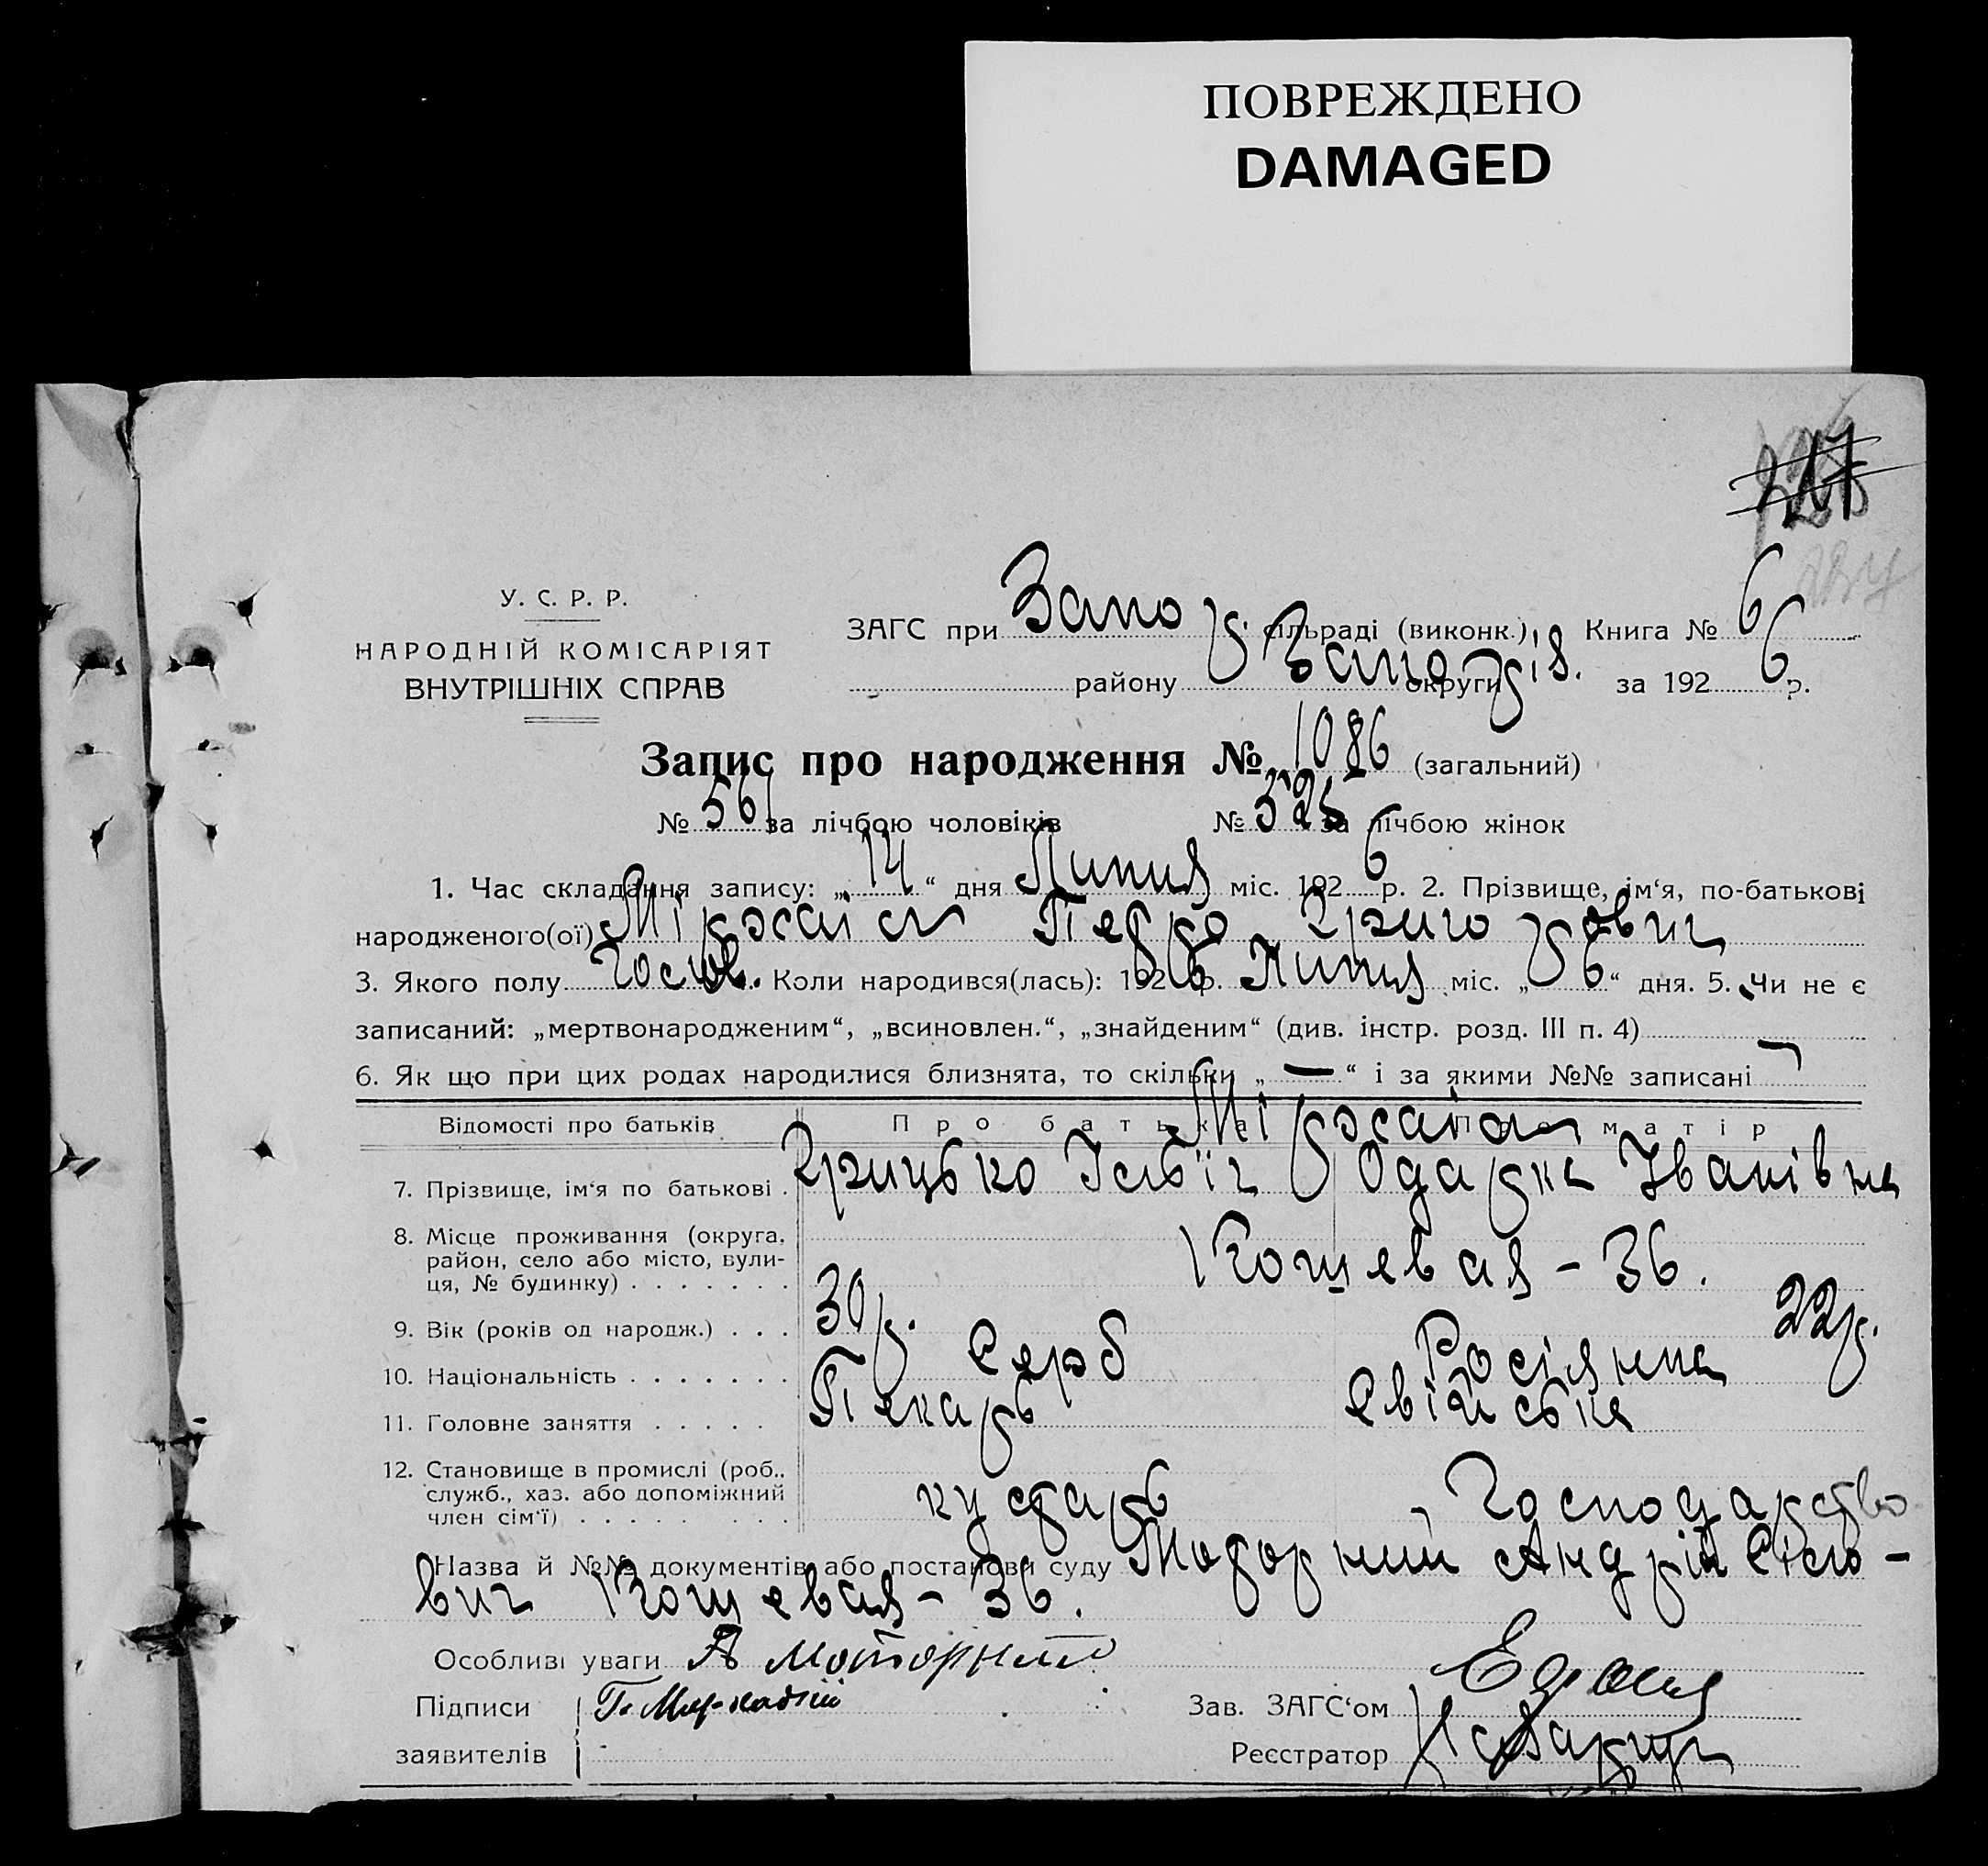 ПОВРЕЖДЕНО
DAMAGED
У. С. Р. Р.
НАРОДНІЙ КОМІСАРІЯТ
ВНУТРІШНІХ СПРАВ
ЗАГС при Запо сільраді (виконк.), Книга № 6
району округи за 1926 р.
Запис про народження № 1086 (загальний)
№ 561 за лічбою чоловіків № 525 за лічбою жінок
1. Час складання запису: „14“ дня Липня міс. 1926 р. 2. Прізвище, ім‘я, по-батькові
народженого(ої) Педро
3. Якого полу Коли народився(лась): 1926 р. Липня міс. „6“ дня. 5. Чи не є
записаний: „мертвонародженим“, „всиновлен.“, „знайденим“ (див. інстр. розд. III п. 4)
6. Як що при цих родах народилися близнята, то скільки „—“ і за якими №№ записані
Відомості про батьків Про батька Про матір
7. Прізвище, ім‘я по батькові . Грицько Одарка Іванівна
8. Місце проживання (округа, район, село або місто, вулиця, № будинку) . . . . . . . Кощевая - 36.
9. Вік (років од народж.) . . . 30 р. 22 р.
10. Національність . . . . . . . Серб Росіянка
11. Головне заняття . . . . . Пекарь Свійська
12. Становище в промислі (роб., служб., хаз. або допоміжний член сім‘ї) . . . . . . . . кустарь Господарство
Назва й №№ документів або постанови суду Моторний Андрій
вич Кощевая - 36.
Особливі уваги А Моторний
Підписи Г. Зав. ЗАГС‘ом
заявителів Реєстратор